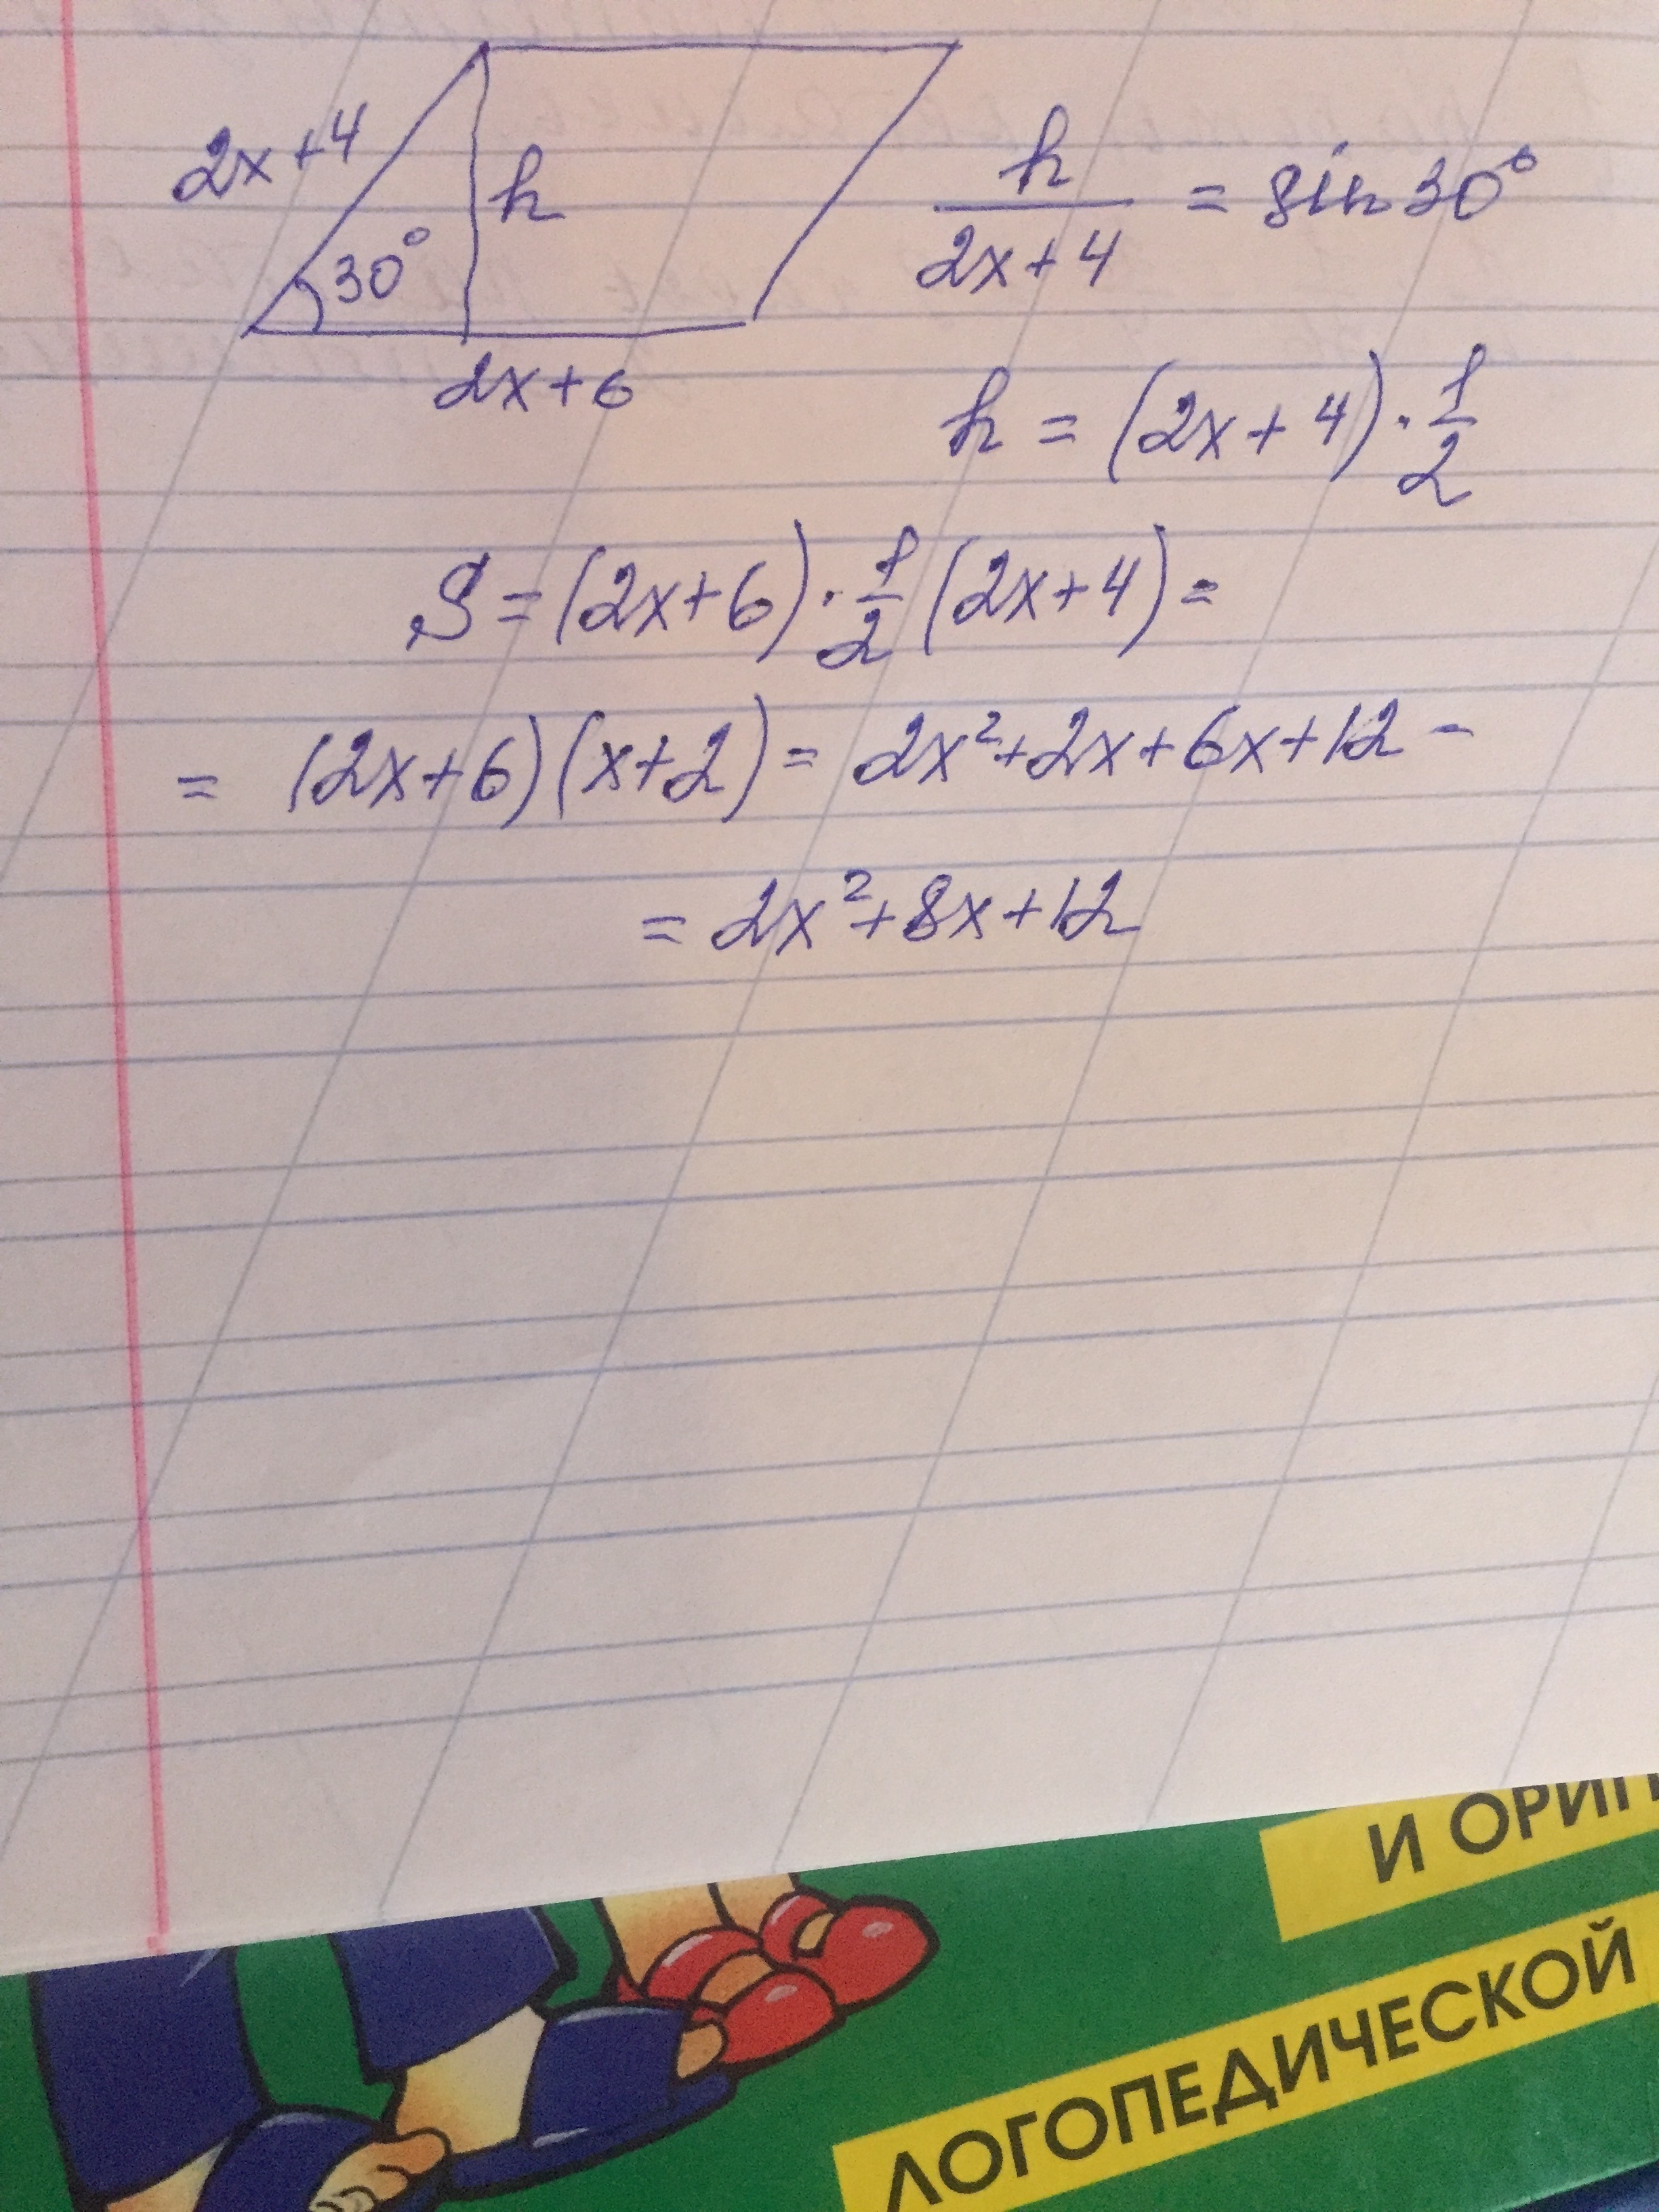 2x+4
h
30°
2x+6
h/(2x+4) = sin 30°
h = (2x+4)·1/2
S = (2x+6)·1/2(2x+4) =
= (2x+6)(x+2) = 2x²+2x+6x+12 -
= 2x²+8x+12
ЛОГОПЕДИЧЕСКОЙ